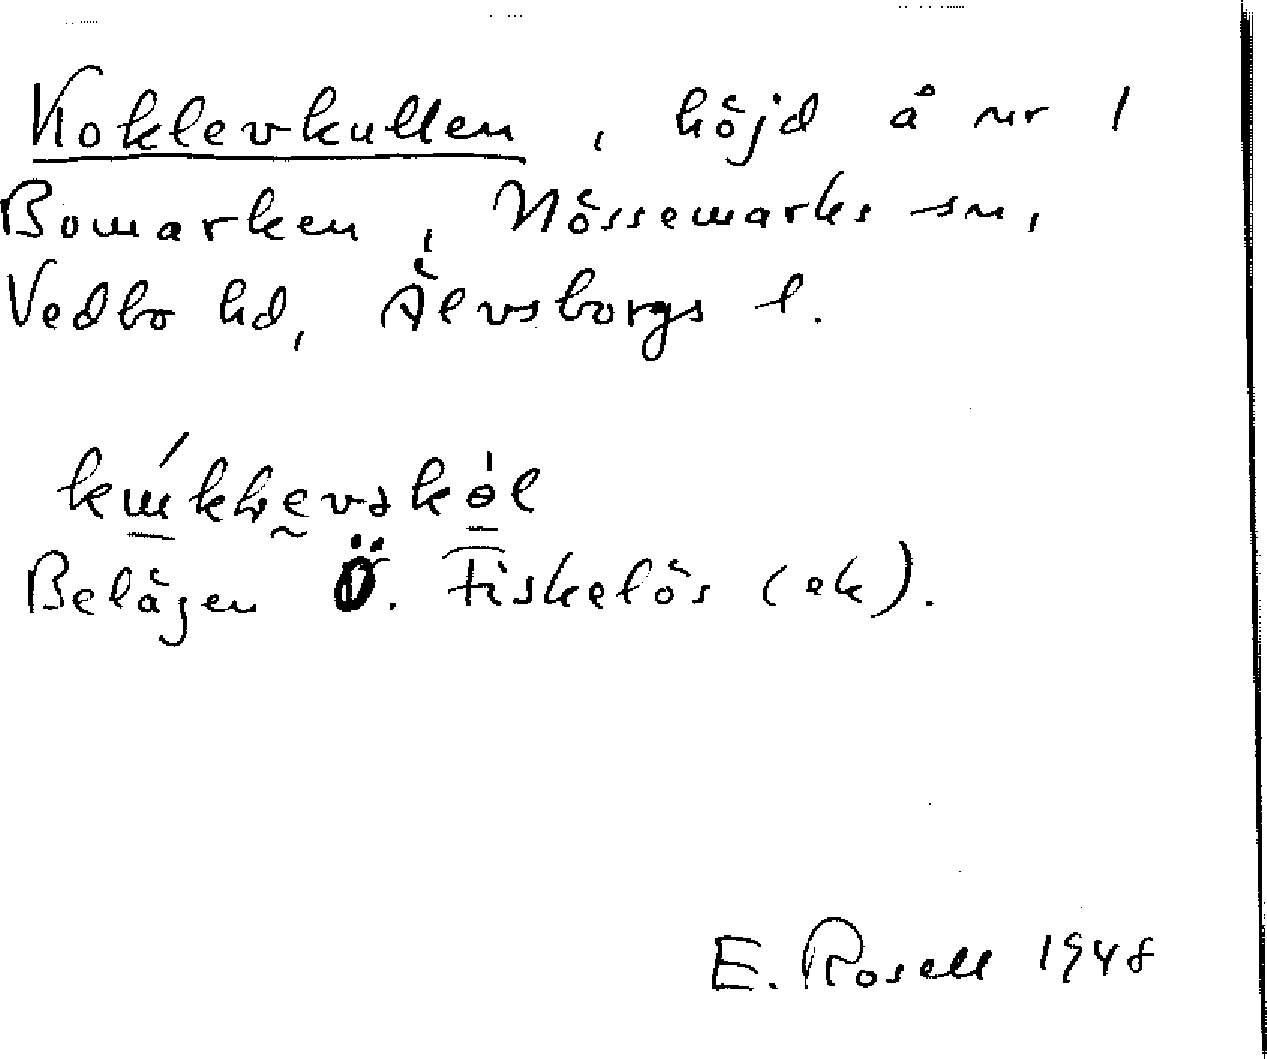 Koklevkullen, höjd å nr 1
Bomarken, Nössemarks sn,
Vedbo hd, Älvsborgs l.
Belägen Ö. Fiskelös (ek).
E. Rosell 1948